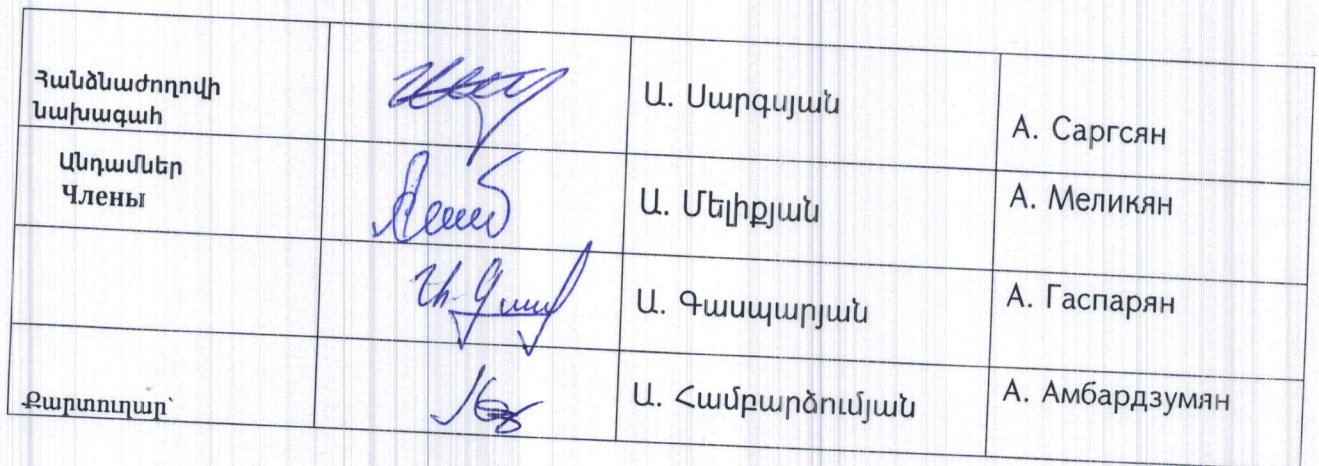 Հանձնաժողովի
նախագահ
Ա. Սարգսյան
А. Саргсян
Անդամներ
Члены
Ա. Մելիքյան
А. Меликян
Ա. Գասպարյան
А. Гаспарян
Քարտուղար՝
Ա. Համբարձումյան
А. Амбардзумян